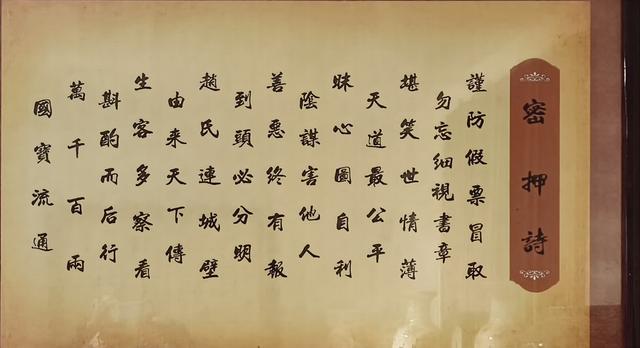 密押詩
謹防假票冒取
勿忘細視書章
堪笑世情薄
天道最公平
昧心圖自利
陰謀害他人
善惡終有報
到頭必分明
趙氏連城壁
由来天下傳
生客多察看
斟酌而后行
萬千百兩
國寶流通